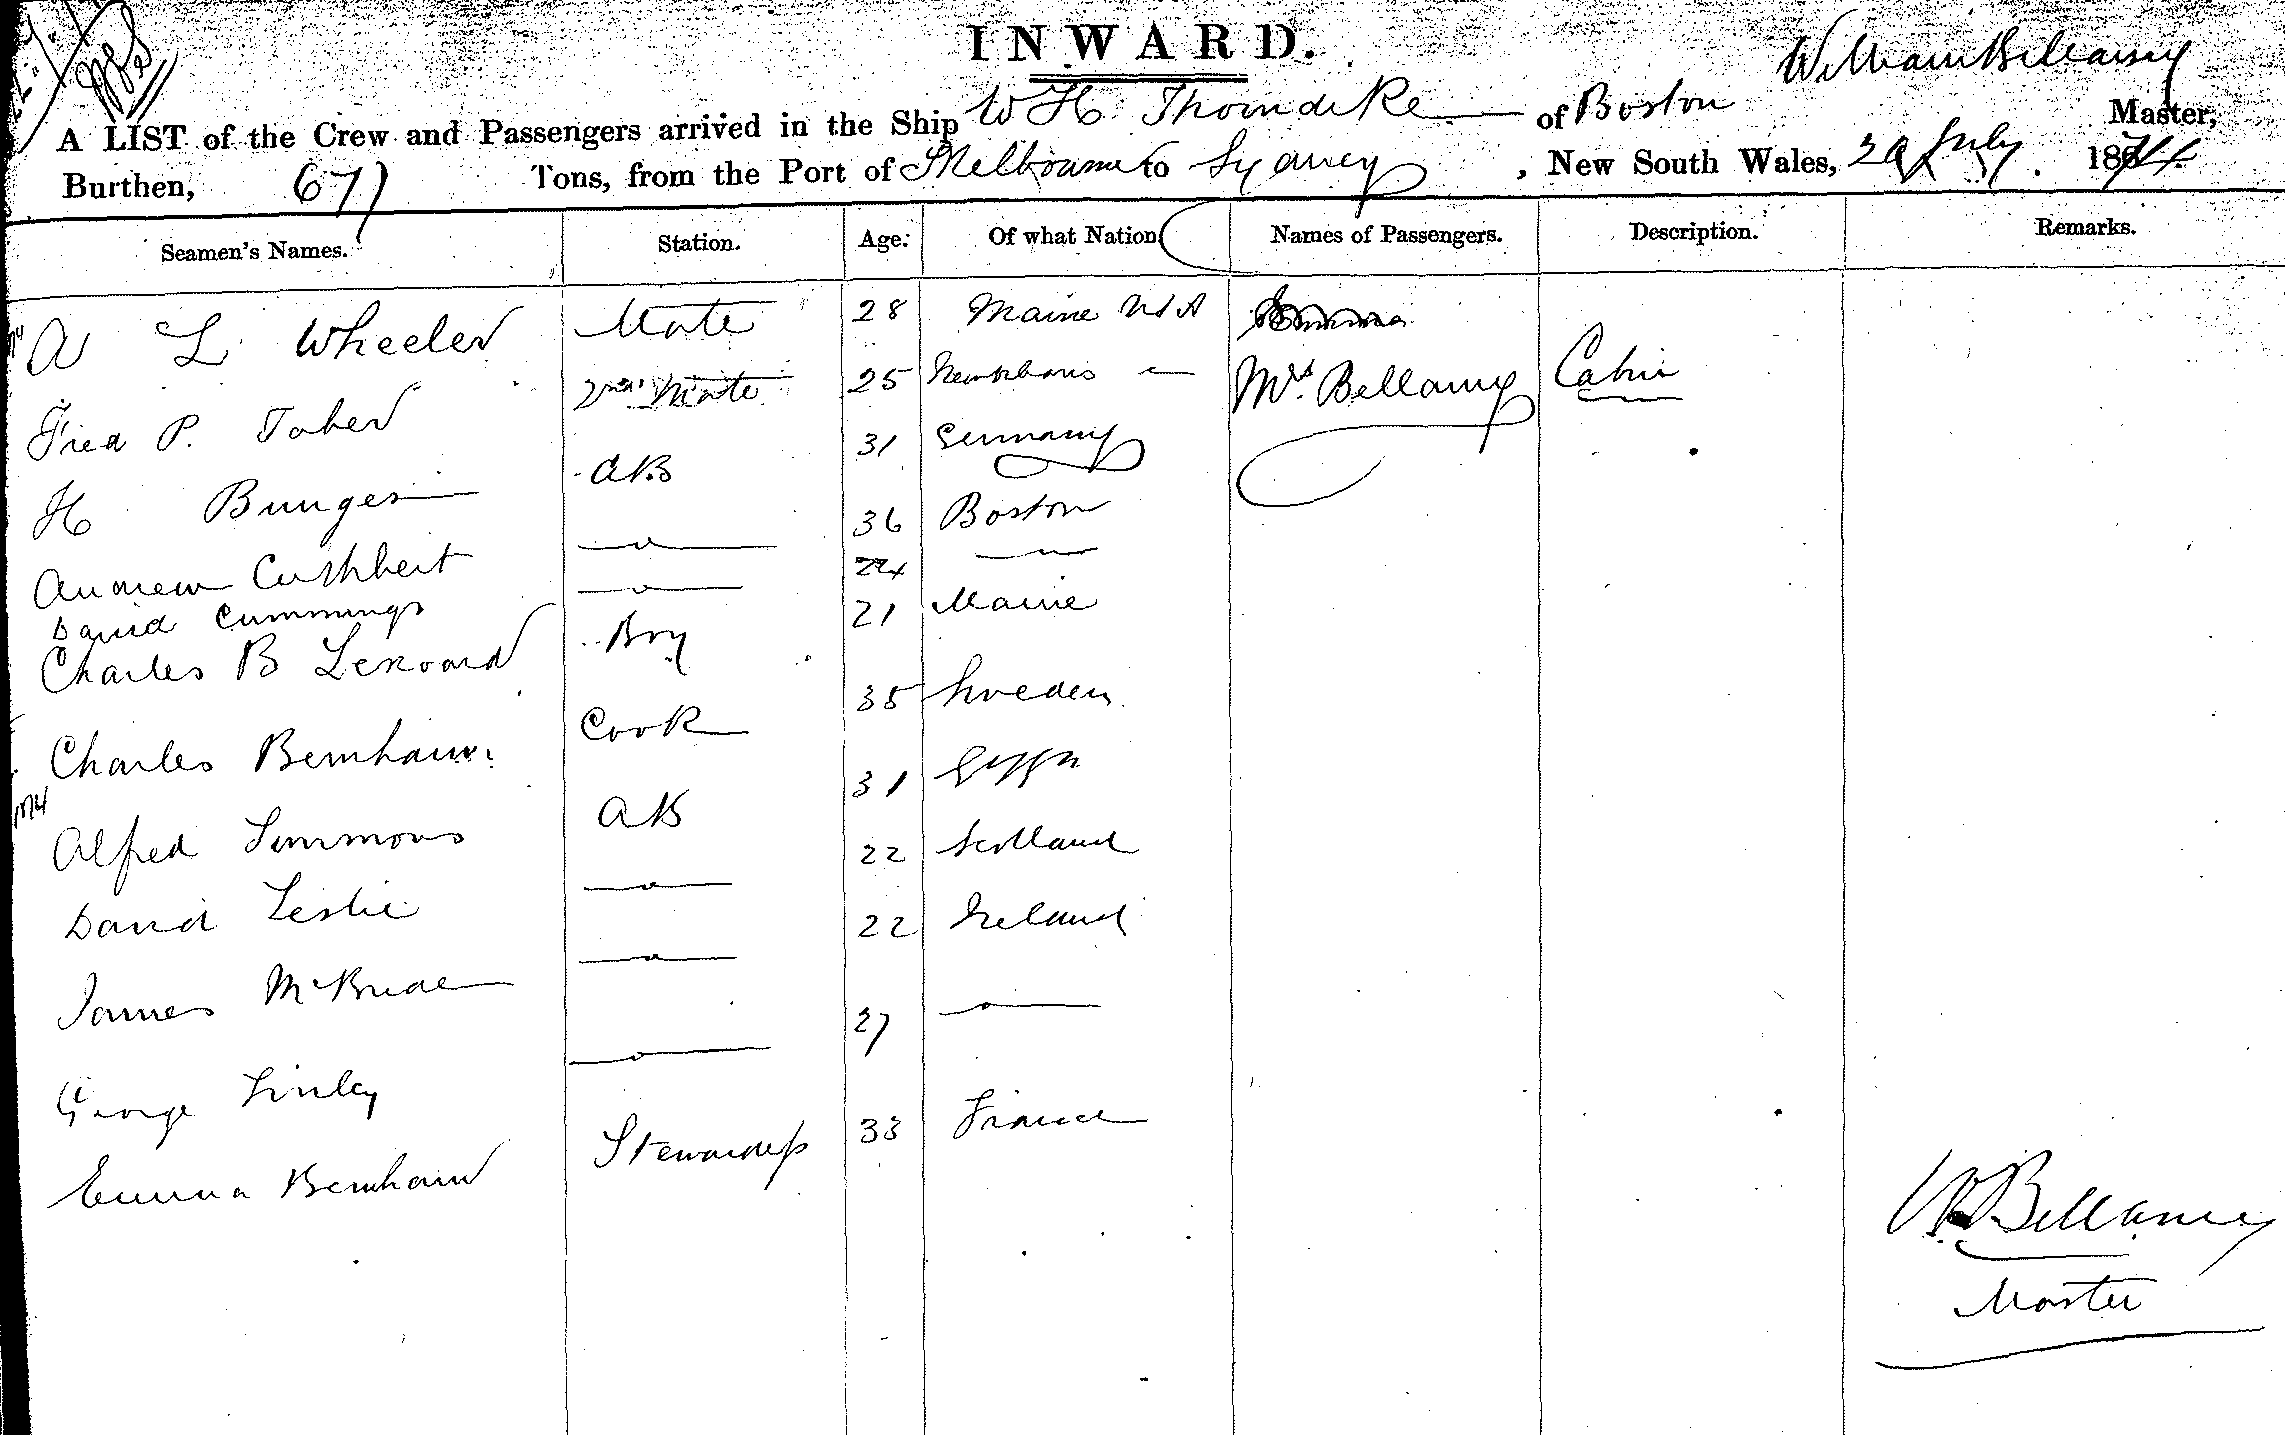 INWARD.
William Bellamy
A LIST of the Crew and Passengers arrived in the Ship W H Thorndike of Boston Master,
Burthen, 677 Tons, from the Port of Melbourne to Sydney, New South Wales, 29 July 1874
Seamen's Names. Station. Age. Of what Nation Names of Passengers. Description. Remarks.
A L Wheeler Mate 28 Maine USA
Fred P. Taber 2nd Mate 25 Mrs. Bellamy Cabin
H Bunges AB 31 Germany
Andrew Cuthbert 36 Boston
David Cummings 24
Charles B Boy 21 Maine
Charles Bernham Cook 35 Sweden
Alfred Simmons AB 31
David Leslie 22 Scotland
James McBride 22 Ireland
George Finley 27
Emma Bernham Stewardess 33 France
W. Bellamy
Master